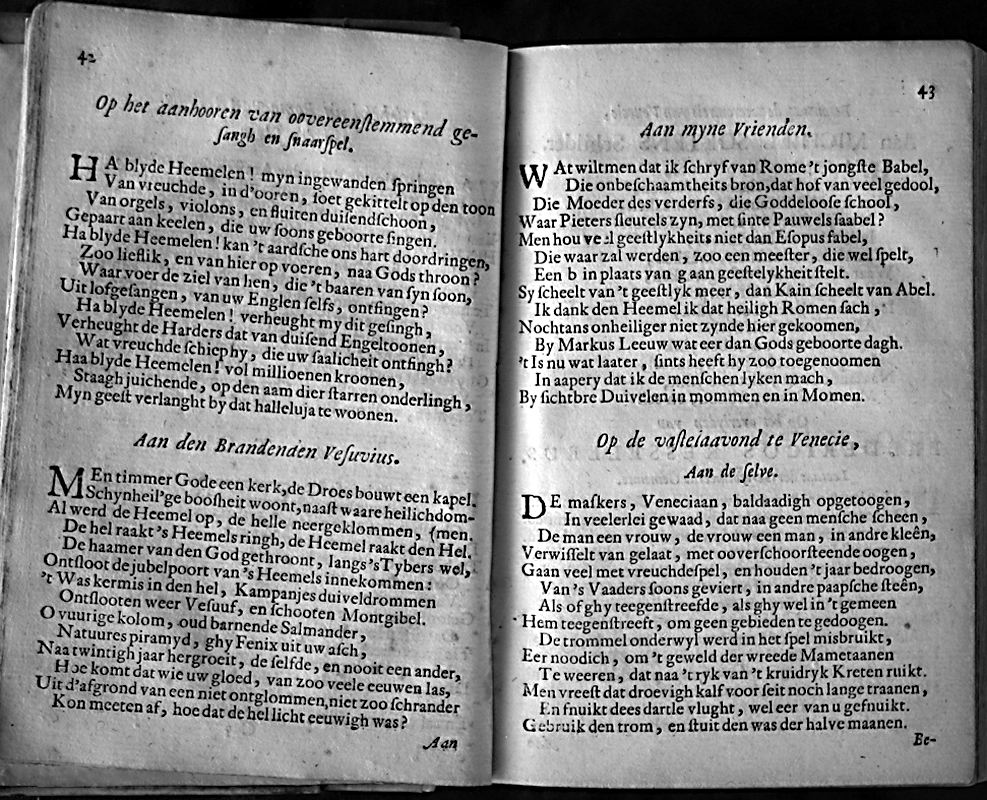 42
Op het aanhooren van oovereenstemmend ge-
sangh en snaarspel.
HA blyde Heemelen! myn ingewanden springen
Van vreuchde, in d'ooren, soet gekittelt op den toon
Van orgels, violons, en fluiten duisendschoon,
Gepaart aan keelen, die uw soons geboorte singen.
Ha blyde Heemelen! kan 't aardsche ons hart doordringen,
Zoo lieflik, en van hier op voeren, naa Gods throon?
Waar voer de ziel van hen, die 't baaren van syn soon,
Uit lofgesangen, van uw Englen selfs, ontfingen?
Ha blyde Heemelen! verheught my dit gesingh,
Verheught de Harders dat van duisend Engeltoonen,
Wat vreuchde schiep hy, die uw saalicheit ontfingh?
Haa blyde Heemelen! vol millioenen kroonen,
Staagh juichende, op den aam dier starren onderlingh,
Myn geest verlanght by dat halleluja te woonen.
Aan den Brandenden Vesuvius.
MEn timmer Gode een kerk, de Droes bouwt een kapel.
Schynheil'ge boosheit woont, naast waare heilichdom-
Al werd de Heemel op, de helle neergeklommen, {men.
De hel raakt 's Heemels ringh, de Heemel raakt den Hel.
De haamer van den God gethroont, langs 'sTybers wel,
Ontsloot de jubelpoort van 's Heemels innekommen:
't Was kermis in den hel, Kampanjes duiveldrommen
Ontslooten weer Vesuuf, en schooten Montgibel.
O vuurige kolom, oud barnende Salmander,
Natuures piramyd, ghy Fenix uit uw asch,
Naa twintigh jaar hergroeit, de selfde, en nooit een ander,
Hoe komt dat wie uw gloed, van zoo veele eeuwen las,
Uit d'afgrond van een niet ontglommen, niet zoo schrander
Kon meeten af, hoe dat de hel licht eeuwigh was?
Aan
43
Aan myne Vrienden.
WAt wiltmen dat ik schryf van Rome 't jongste Babel,
Die onbeschaamtheits bron, dat hof van veel gedool,
Die Moeder des verderfs, die Goddeloose school,
Waar Pieters sleutels zyn, met sinte Pauwels saabel?
Men hou veel geestlykheits niet dan Esopus fabel,
Die waar zal werden, zoo een meester, die wel spelt,
Een b in plaats van g aan geestelykheit stelt.
Sy scheelt van 't geestlyk meer, dan Kain scheelt van Abel.
Ik dank den Heemel ik dat heiligh Romen sach,
Nochtans onheiliger niet zynde hier gekoomen,
By Markus Leeuw wat eer dan Gods geboorte dagh.
't Is nu wat laater, sints heeft hy zoo toegenoomen
In aapery dat ik de menschen lyken mach,
By sichtbre Duivelen in mommen en in Momen.
Op de vastelaavond te Venecie,
Aan de selve.
DE maskers, Veneciaan, baldaadigh opgetoogen,
In veelerlei gewaad, dat naa geen mensche scheen,
De man een vrouw, de vrouw een man, in andre kleên,
Verwisselt van gelaat, met ooverschoorsteende oogen,
Gaan veel met vreuchdespel, en houden 't jaar bedroogen,
Van 's Vaaders soons geviert, in andre paapsche steên,
Als of ghy teegenstreefde, als ghy wel in 't gemeen
Hem teegenstreeft, om geen gebieden te gedoogen.
De trommel onderwyl werd in het spel misbruikt,
Eer noodich, om 't geweld der wreede Mametaanen
Te weeren, dat naa 't ryk van 't kruidryk Kreten ruikt.
Men vreest dat droevigh kalf voor seit noch lange traanen,
En fnuikt dees dartle vlught, wel eer van u gefnuikt.
Gebruik den trom, en stuit den was der halve maanen.
Be-